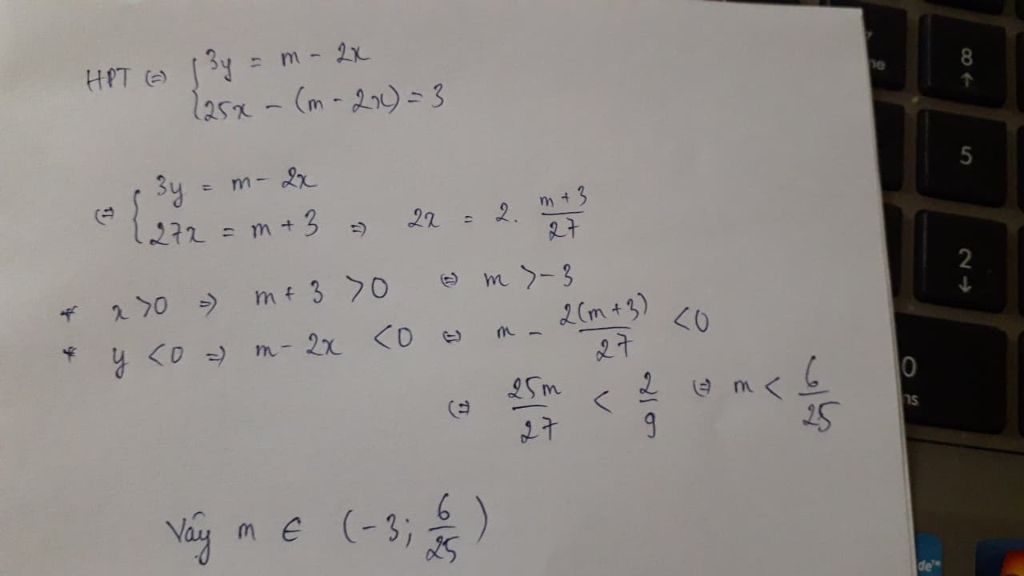 HPT ⇔ { 3y = m - 2x
25x - (m - 2x) = 3
⇔ { 3y = m - 2x
27x = m + 3 ⇒ 2x = 2. (m+3)/27
* x > 0 ⇒ m + 3 > 0 ⇔ m > -3
* y < 0 ⇒ m - 2x < 0 ⇔ m - 2(m+3)/27 < 0
⇔ 25m/27 < 2/9 ⇔ m < 6/25
Vậy m ∈ (-3; 6/25)
8
↑
5
2
↓
0
ns
de™